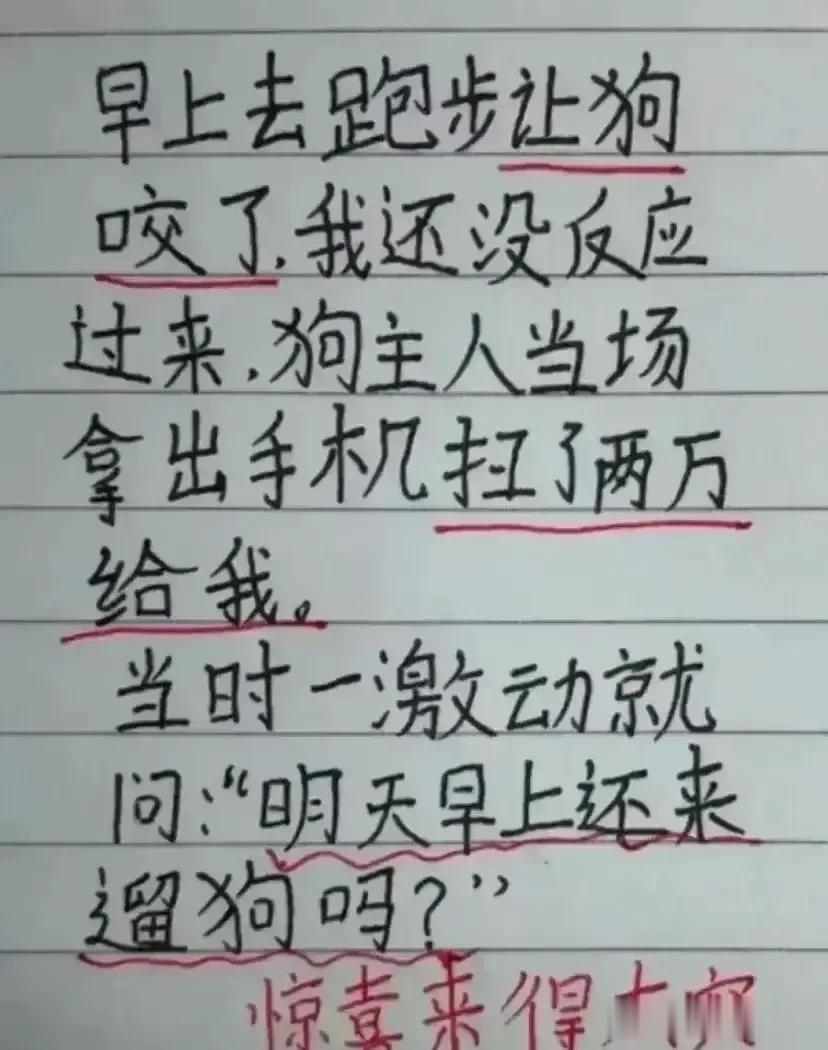 早上去跑步让狗
咬了,我还没反应
过来,狗主人当场
拿出手机扫了两万
给我。
当时一激动就
问:“明天早上还来
遛狗吗?”
惊喜来得